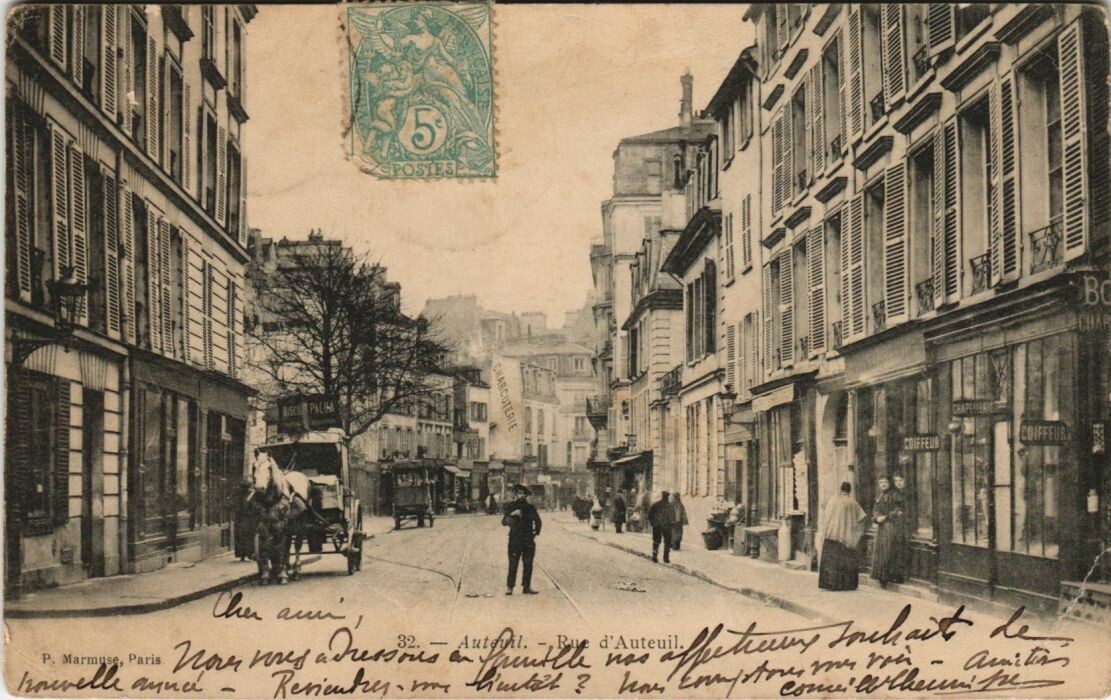 5c
POSTES
BISCUIT PACHA
CHARCUTERIE
BO
CHA
CHAPELLERIE
COIFFEUR
COIFFEUR
Cher ami,
32. — Auteuil. – Rue d'Auteuil.
P. Marmuse, Paris
Nous vous adressons en famille nos affectueux souhaits de
nouvelle année – Reviendrez-vous bientôt ? Nous comptons vous voir – Amitiés